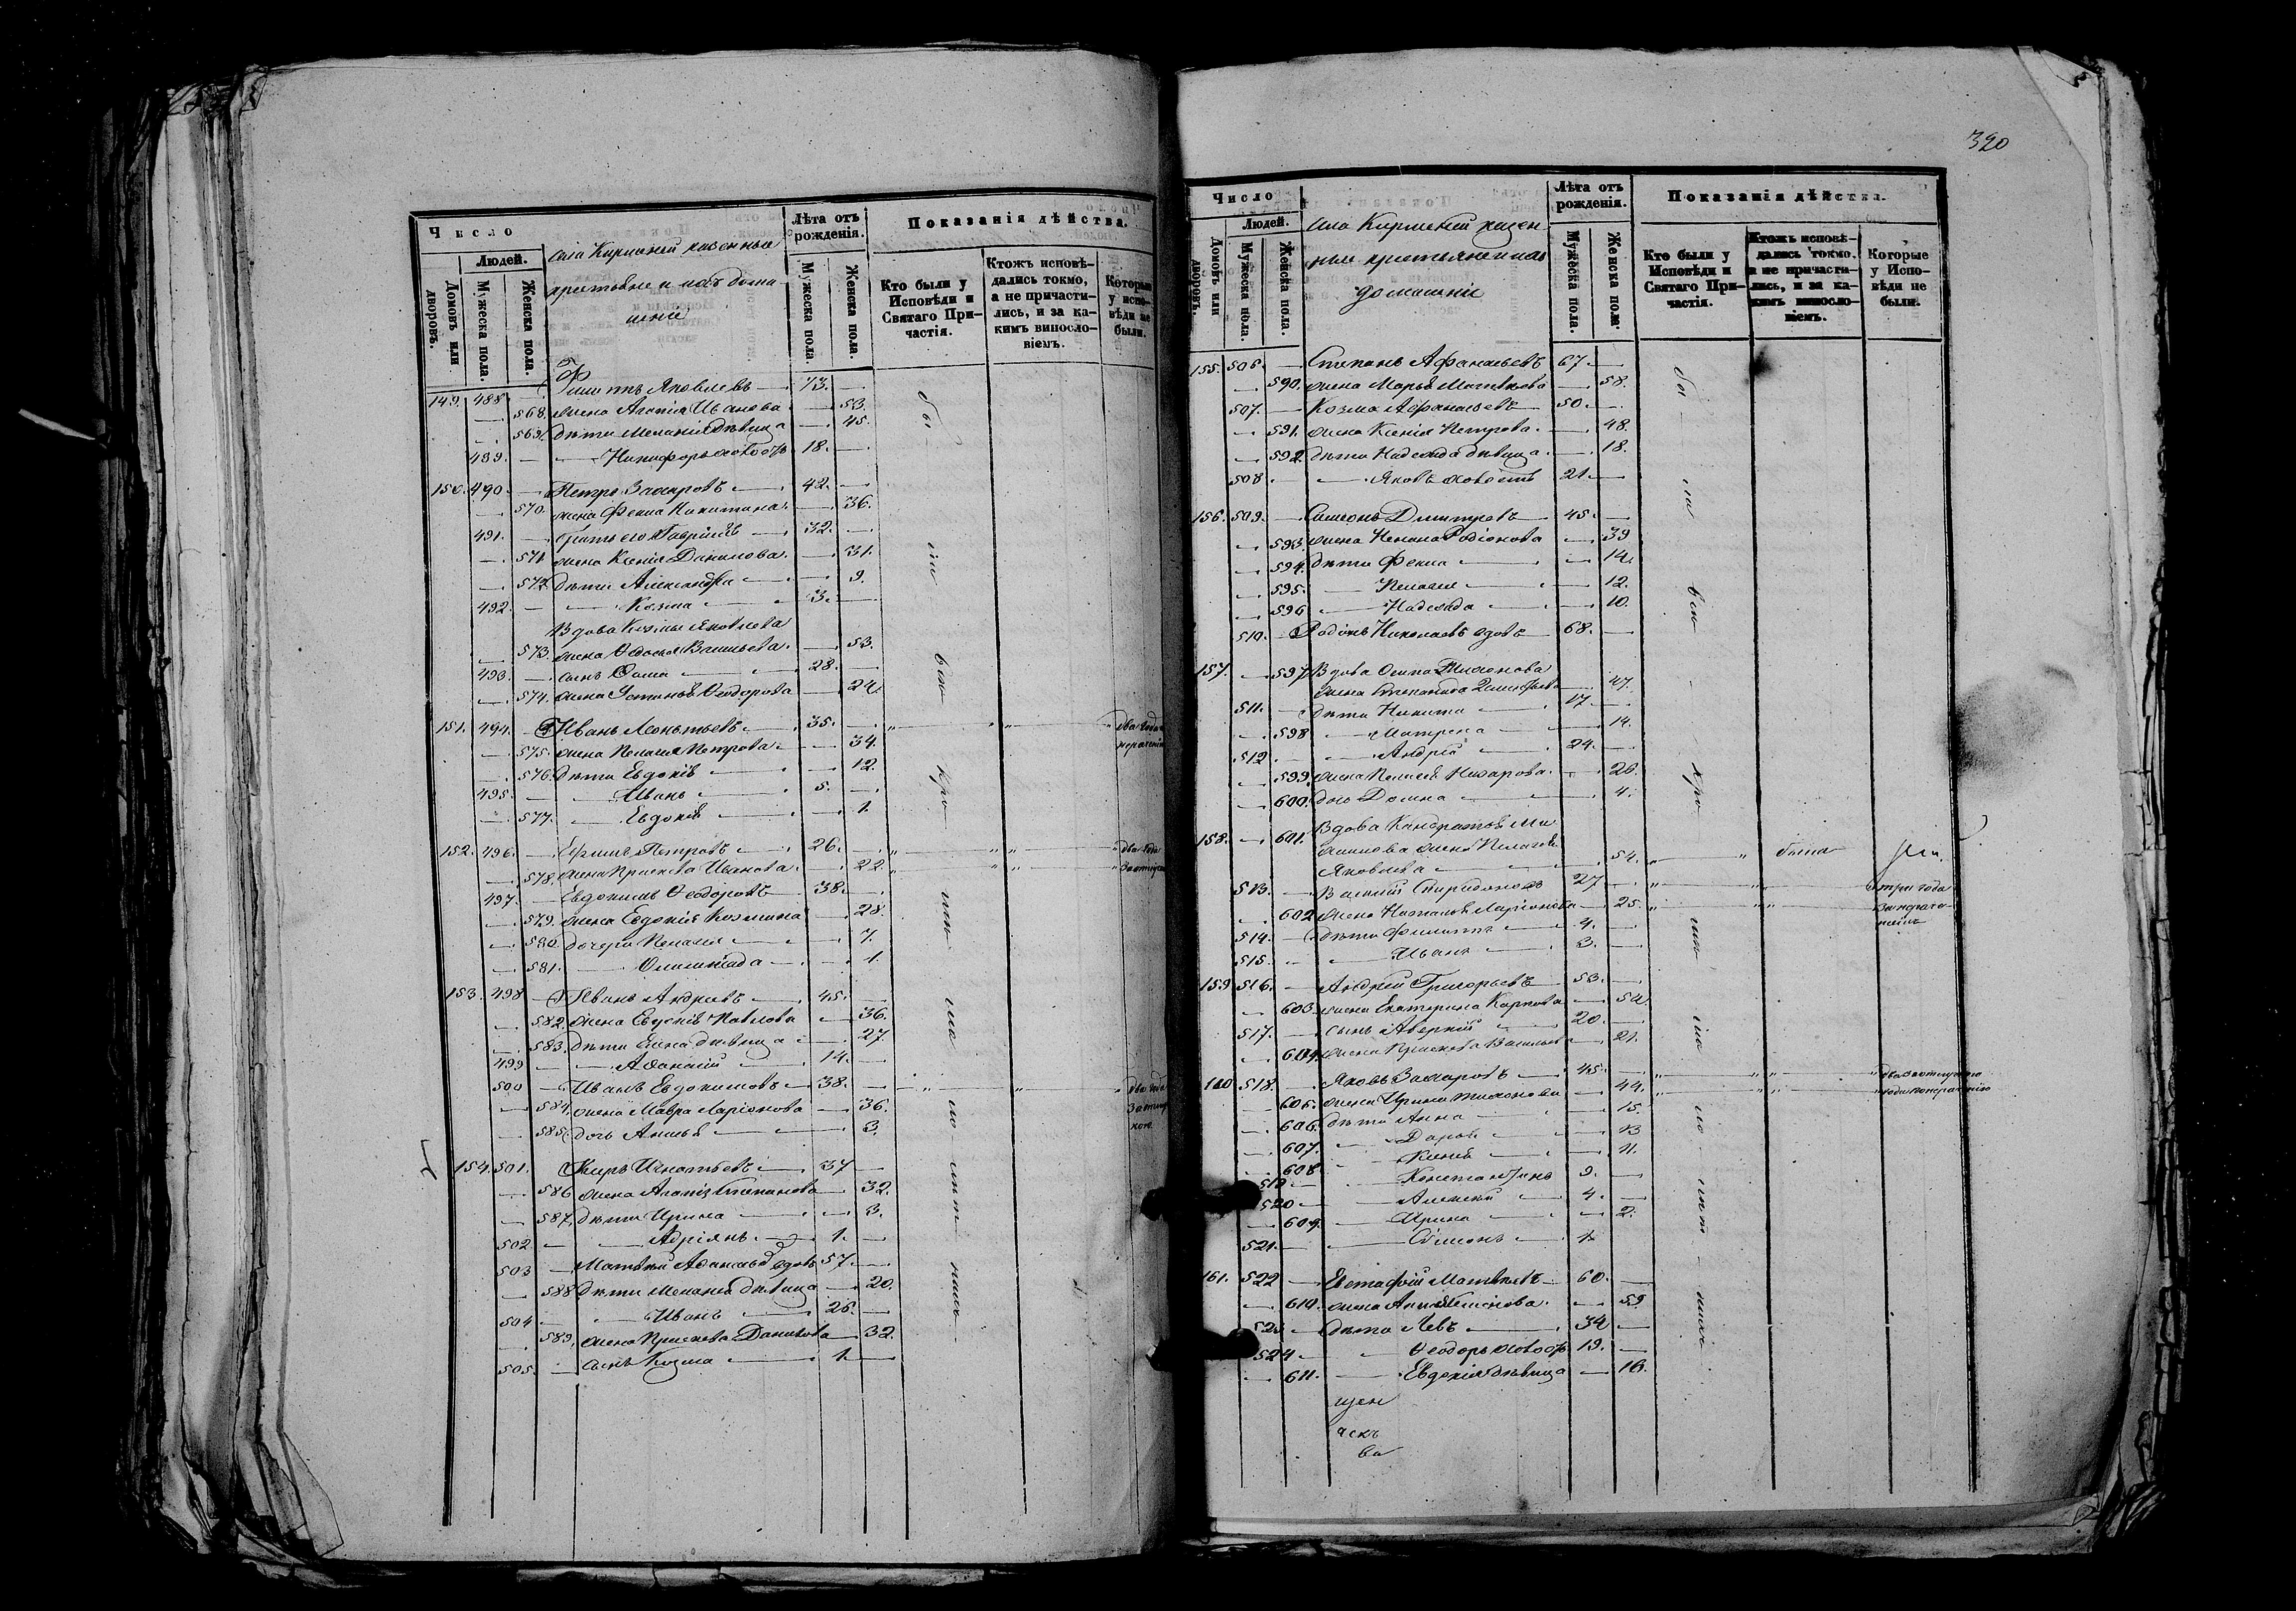 Число
Людей.
Домовъ или дворовъ.
Мужеска пола.
Женска пола.
села казенные
крестьяне и ихъ дома-
шніе
Лѣта отъ рожденія.
Мужеска пола.
Женска пола.
Показанія дѣйства.
Кто были у Исповѣди и Святаго Причастія.
Ктожъ исповѣдались токмо, а не причастились, и за какимъ винословіемъ.
Которые у исповѣди не были.
149. 488. — Филиппъ Яковлевъ — 73. —
— 568. жена Агапія Иванова — 53.
— 569. дѣти Меланія дѣвица — 45.
489. — Никифоръ холостъ 18. —
150. 490. — Петръ Захаровъ — 42. —
— 570. жена Фекла Никитина — 36.
491. — братъ его Гавріилъ — 32. —
— 571. жена Ксенія Данилова — 31.
— 572. дѣти Александра — 9.
492. — Козма — 3. —
Вдова Козмы Яковлева
— 573. жена Ѳедосья Васильева — 53.
493. — сынъ Ѳома — 28. —
— 574. жена Устинья Ѳеодорова — 24.
151. 494. — Иванъ Леонтьевъ — 35. — два года
— 575. жена Пелагея Петрова — 34.
— 576. дѣти Евдокія — 12.
495. — Иванъ — 5. —
— 577. — Евдокія — 1.
152. 496. — Ефимъ Петровъ — 26. — два года
— 578. жена Прасковья Иванова — 22.
497. — Евдокимъ Ѳеодоровъ — 38. —
— 579. жена Евдокія Козмина — 28.
— 580. дочери Пелагея — 7.
— 581. — Олимпіада — 1.
153. 498. — Иванъ Андреевъ — 45. —
— 582. жена Евгенія Павлова — 36.
— 583. дѣти Елена дѣвица — 27.
499. — Афанасій — 14. —
500. — Иванъ Евдокимовъ — 38. — два года
— 584. жена Мавра Ларіонова — 36.
— 585. дочь Анисья — 3.
154. 501. Киръ Игнатьевъ — 37 —
— 586. жена Агапія Степанова — 32.
— 587. дѣти Ирина — 3.
502. — Адріянъ — 1. —
503. — Матвѣй вдовъ 57. —
— 588. дѣти Меланія дѣвица — 20.
504. — Иванъ — 26. —
— 589. жена Прасковья Данилова — 32.
505. — сынъ Козма — 1. —
бы ли вси кро ми ша ло лѣт нихъ
390
Число
Людей.
Домовъ или дворовъ.
Мужеска пола.
Женска пола.
села казен-
ные крестьяне и ихъ
домашніе
Лѣта отъ рожденія.
Мужеска пола.
Женска пола.
Показанія дѣйства.
Кто были у Исповѣди и Святаго Причастія.
Ктожъ исповѣдались токмо, а не причастились, и за какимъ винословіемъ.
Которые у Исповѣди не были.
155. 506. — Степанъ Афанасьевъ 67. —
— 590. жена Марья Матвѣева — 58.
507. — Козма Афанасьевъ — 50. —
— 591. жена Ксенія Петрова — 48.
— 592. дѣти Надежда дѣвица — 18.
508. — Яковъ холостъ 21. —
156. 509. — Симеонъ Димитріевъ — 45. —
— 593. жена Ненила Родіонова — 39
— 594. дѣти Фекла — 14.
— 595. — Пелагея — 12.
— 596 — Надежда — 10.
510. — Родіонъ Николаевъ вдовъ 68. —
157. — 597. Вдова Осипа Тимонова
жена Степанида — 47.
511. — дѣти Никита — 17. —
— 598 — Матрена — 14.
512. — Андрей — 24. —
— 599. жена Пелагея Назарова — 26.
— 600. дочь Домна — 4.
158. — 601. Вдова Кондратья
жена Пелагея
Яковлева — 54. была
513. — Василій Спиридоновъ 27 — три года
— 602. жена Наталья Ларіонова — 25.
514. — дѣти Филиппъ — 4. —
515. — Иванъ — 3. —
159 516. — Андрей Григорьевъ — 53. —
— 603. жена Екатерина Карпова — 54
517. — сынъ Аверкій — 20. —
— 604. жена Прасковья Васильева — 21.
160 518. Яковъ Захаровъ — 45. —
— 605. жена Ирина Тимонова — 44.
— 606. дѣти Анна — 15.
— 607. — Дарья — 13
— 608 — Ксенія — 11.
519 — Константинъ 9. —
520 — Алексѣй — 4. —
— 609. — Ирина — 2.
521. — Симеонъ — 1.
161. 522 — Евстафій Матвѣевъ — 60. —
— 610. жена — 59
523 — дѣти Левъ — 34 —
524 — Ѳеодоръ холостъ 19. —
— 611. — Евдокія дѣвица — 16.
бы ли вси кро ми ша ло лѣт нихъ